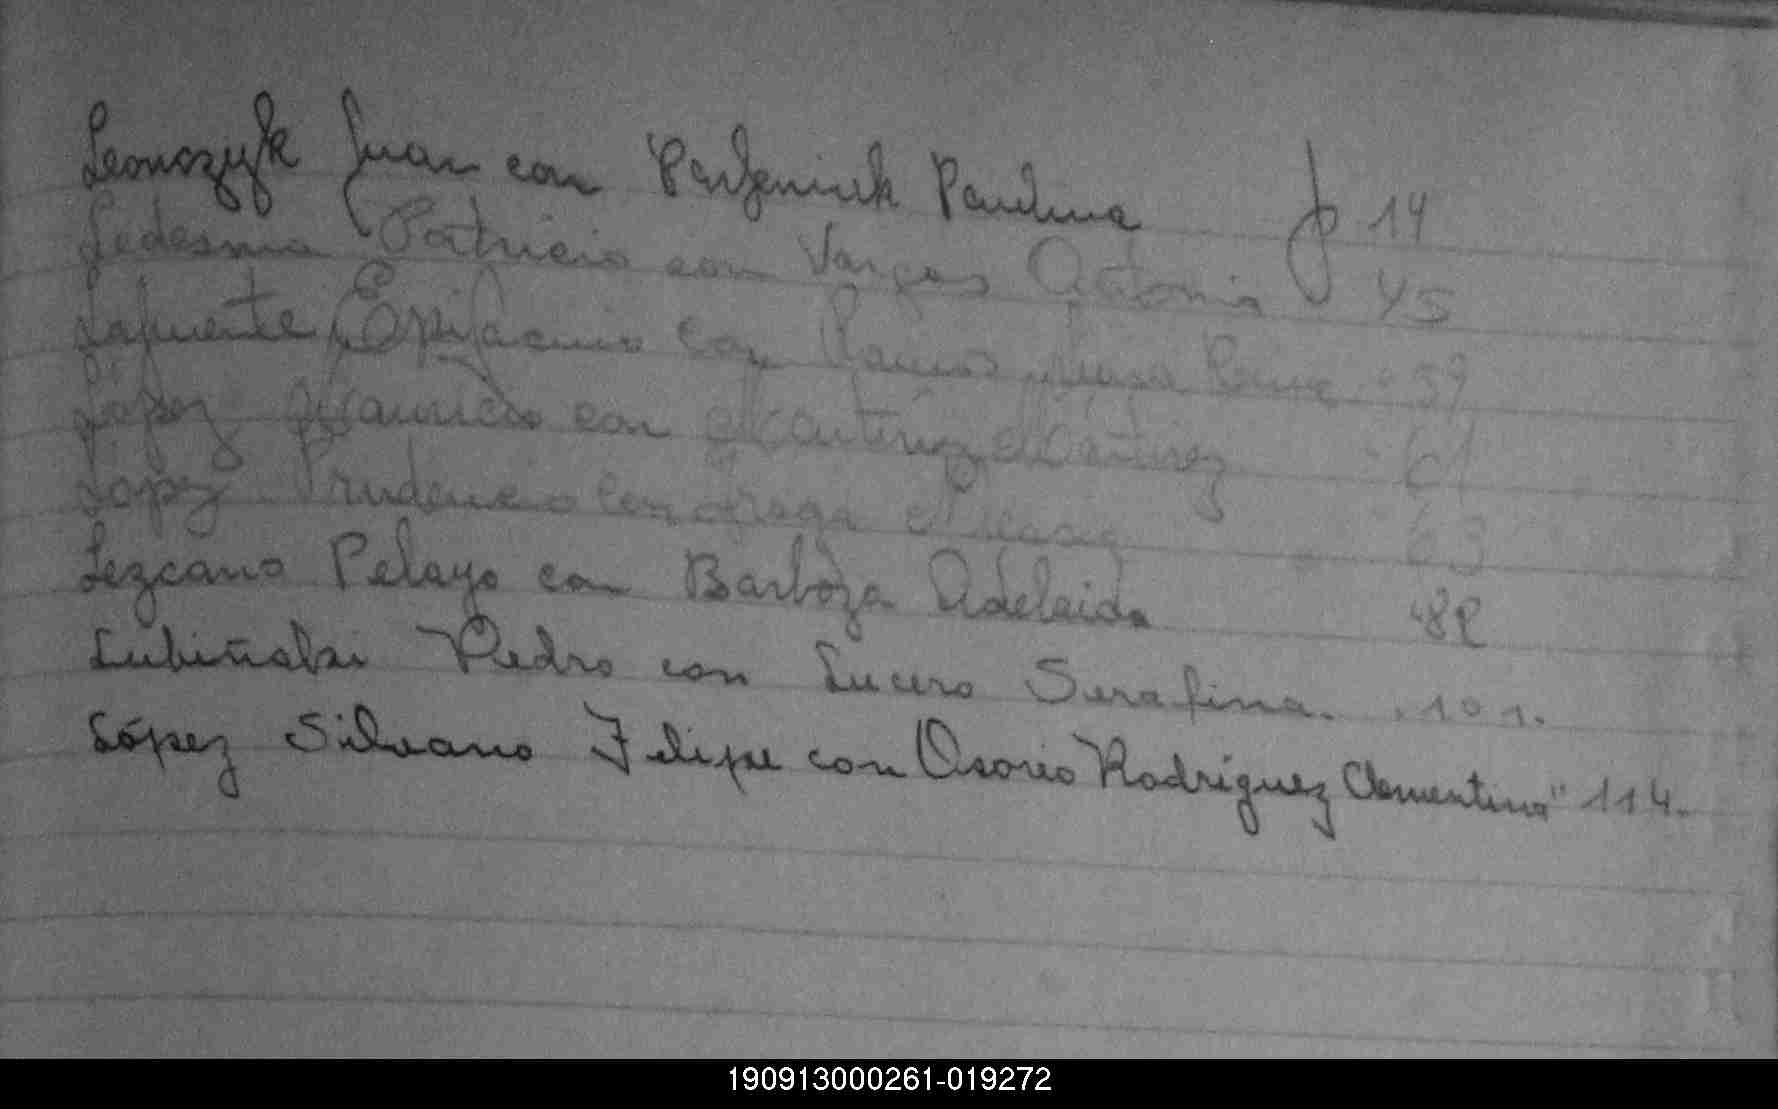 Juan con Paulina f 14
Ledesma Patricio con Vargas Antonia 45
Lafuente Epifacnio con Ramos 59
López Mauricio con Martínez 61
López Prudencio con 63
Lezcano Pelayo con Barboza Adelaida 82
Lubiñski Pedro con Lucero Serafina. 101.
López Silvano Felipe con Osorio Rodríguez Clementina " 114.
190913000261-019272